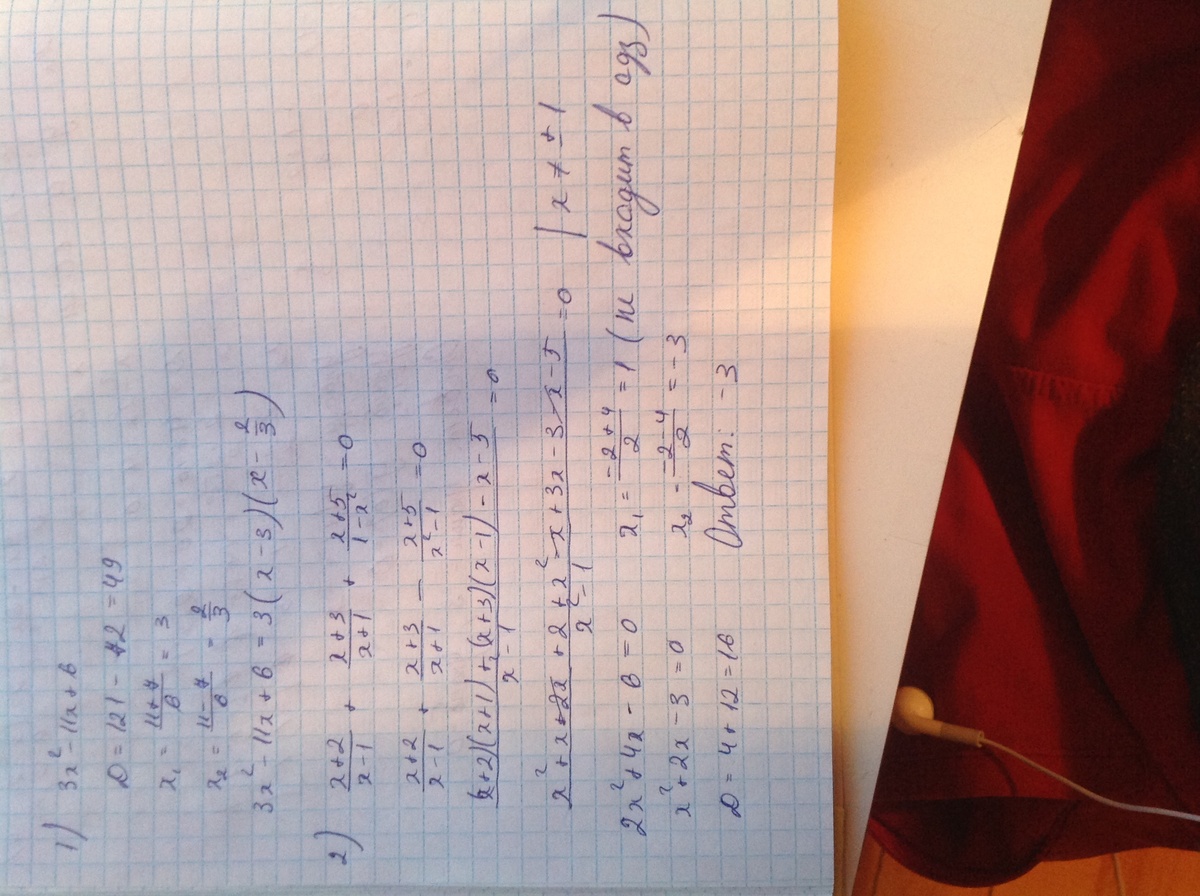 1) 3x² - 11x + 6
D = 121 - 72 = 49
x₁ = (11+7)/6 = 3
x₂ = (11-7)/6 = 2/3
3x² - 11x + 6 = 3(x - 3)(x - 2/3)
2) (x+2)/(x-1) + (x+3)/(x+1) + (x+5)/(1-x²) = 0
(x+2)/(x-1) + (x+3)/(x+1) - (x+5)/(x²-1) = 0
((x+2)(x+1) + (x+3)(x-1) - x - 5)/(x²-1) = 0
(x² + x + 2x + 2 + x² - x + 3x - 3 - x - 5)/(x²-1) = 0 | x ≠ ±1
2x² + 4x - 6 = 0 x₁ = (-2+4)/2 = 1 (не входит в одз)
x² + 2x - 3 = 0 x₂ = (-2-4)/2 = -3
D = 4 + 12 = 16 Ответ: -3